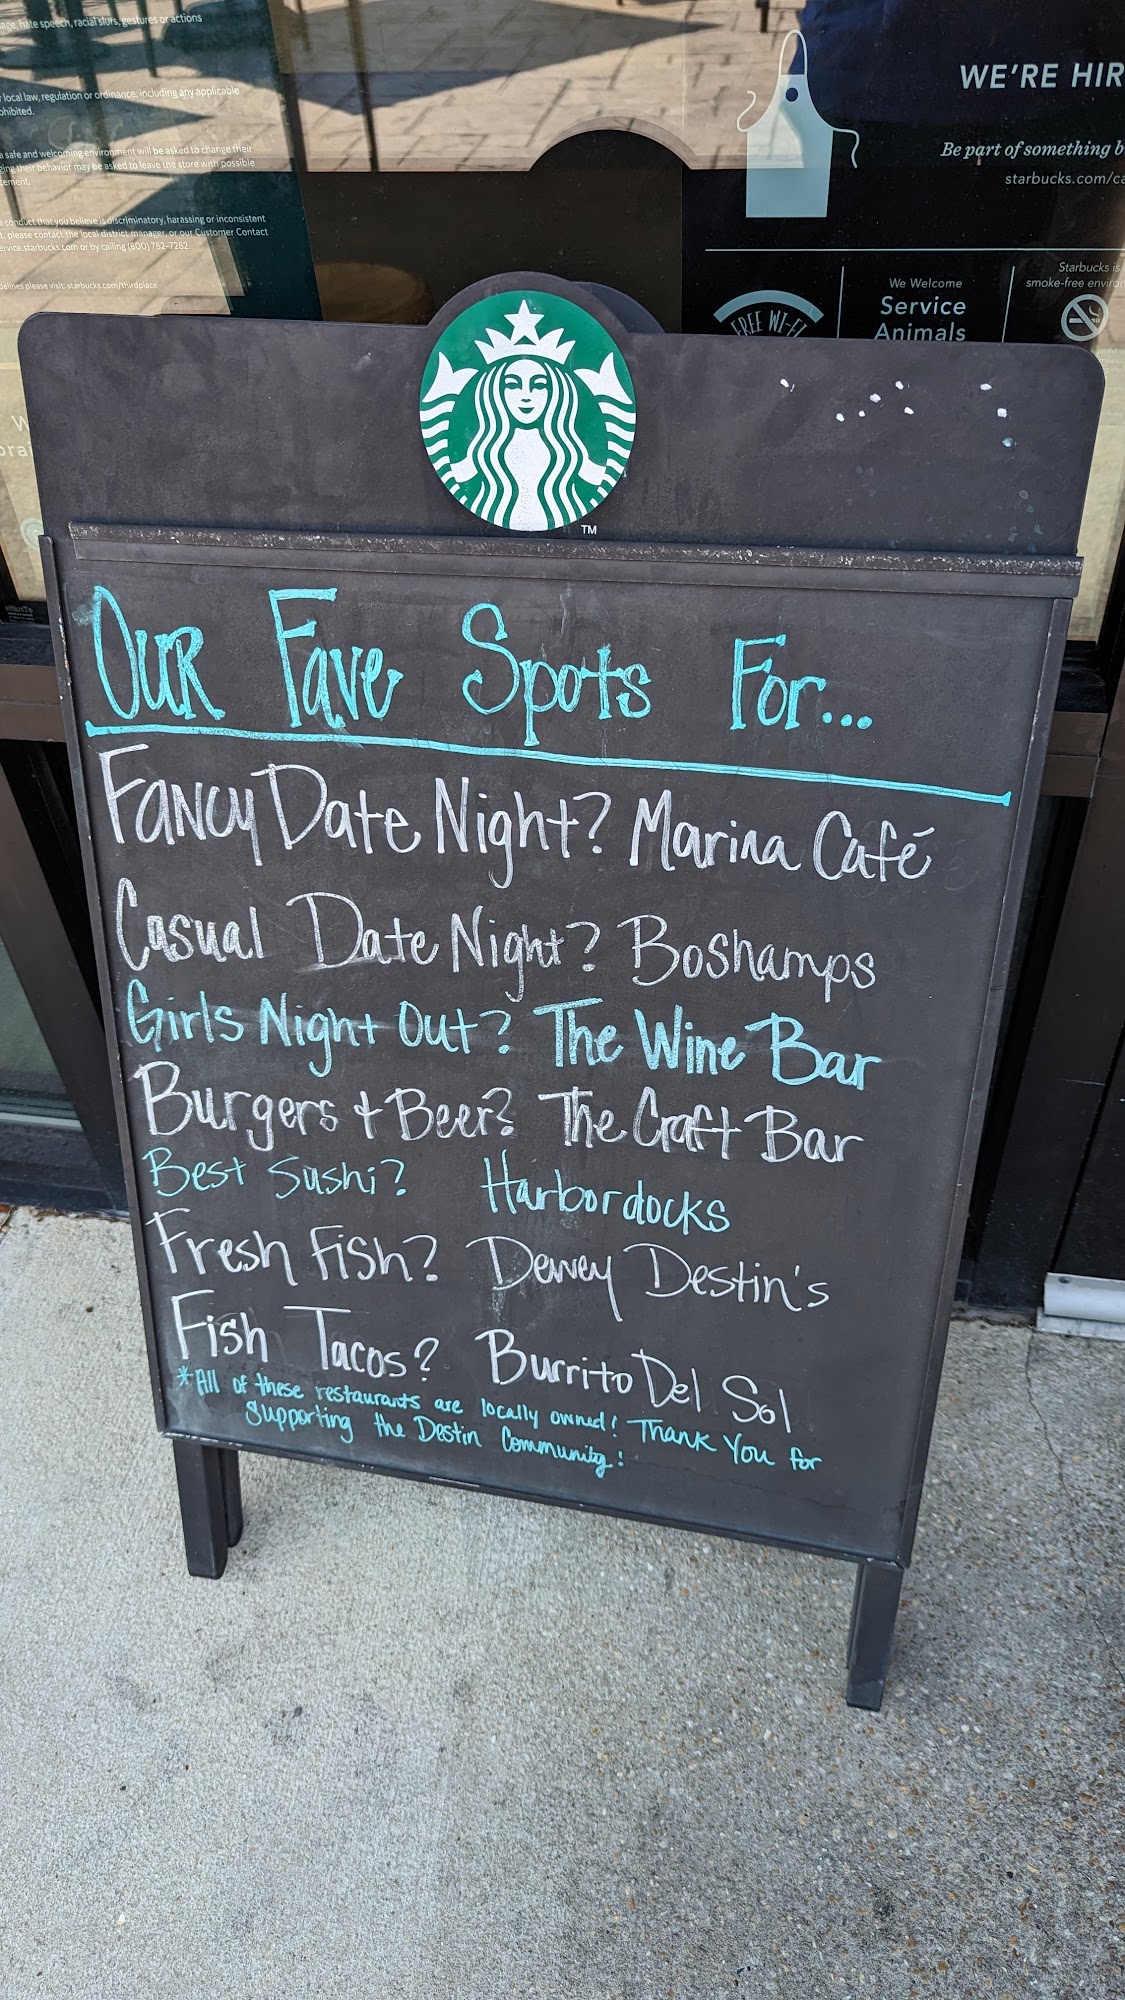 age, hate speech, racial slurs, gestures or actions
local law, regulation or ordinance, including any applicable
ohibited.
a safe and welcoming environment will be asked to change their
ging their behavior may be asked to leave the store with possible
cement.
conduct that you believe is discriminatory, harassing or inconsistent
, please contact the local district manager, or our Customer Contact
ervice.starbucks.com or by calling (800) 782-7282.
delines please visit: starbucks.com/thirdplace
WE'RE HIR
Be part of something b
starbucks.com/ca
FREE WI-FI
We Welcome
Service
Animals
Starbucks is
smoke-free environ
TM
Our Fave Spots For...
Fancy Date Night? Marina Café
Casual Date Night? Boshamps
Girls Night Out? The Wine Bar
Burgers + Beer? The Craft Bar
Best Sushi? Harbordocks
Fresh Fish? Dewey Destin's
Fish Tacos? Burrito Del Sol
*All of these restaurants are locally owned! Thank You for
supporting the Destin Community!